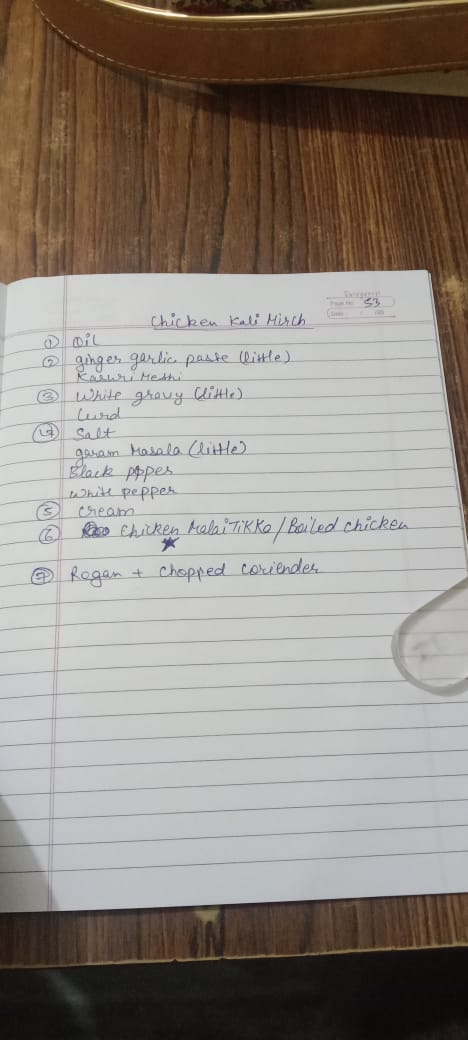 Page No. 53
Date: / /20
Chicken Kali Mirch
① Oil
② ginger garlic paste (little)
Kasuri Methi
③ White gravy (little)
Curd
④ Salt
garam Masala (little)
Black pepper
White pepper
⑤ Cream
⑥ Chicken Malai Tikka / Boiled chicken
⑦ Rogan + Chopped coriender